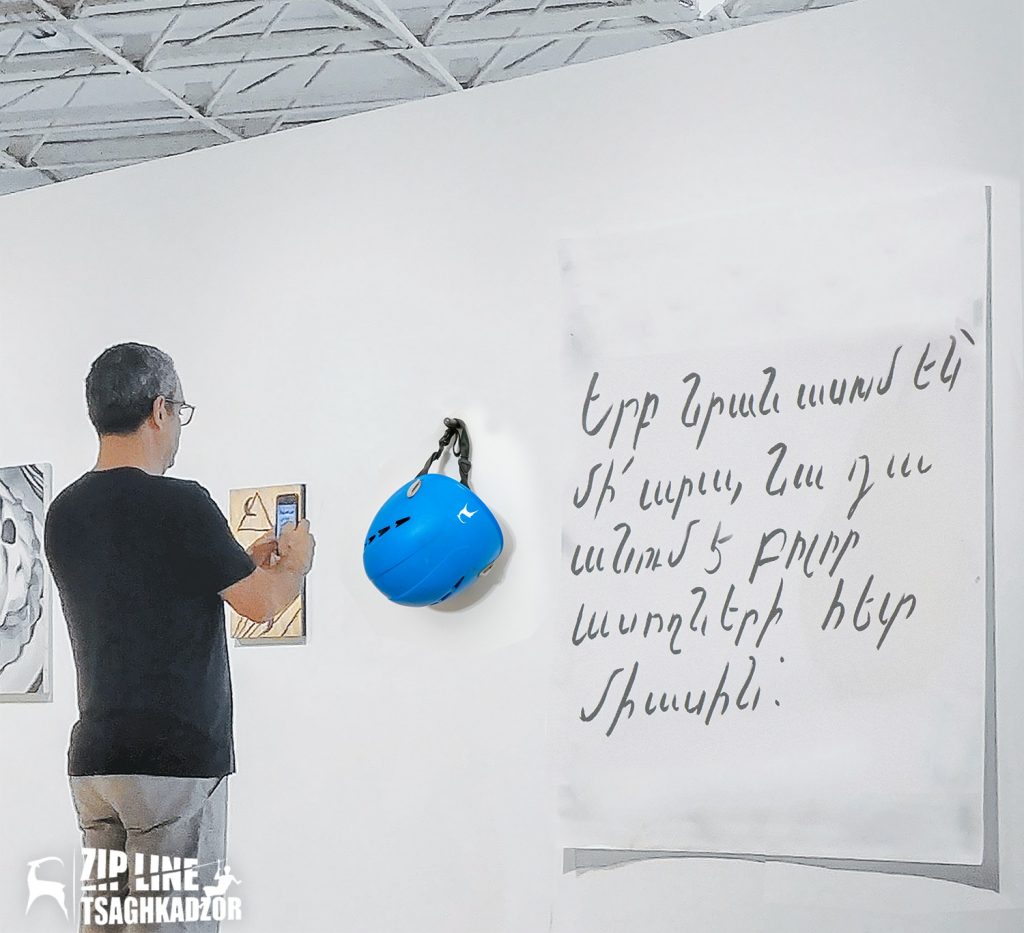 Երբ նրան ասում են՝
մի՛ արա, նա դա
անում է բոլոր
ասողների հետ
միասին.
ZIP LINE
TSAGHKADZOR